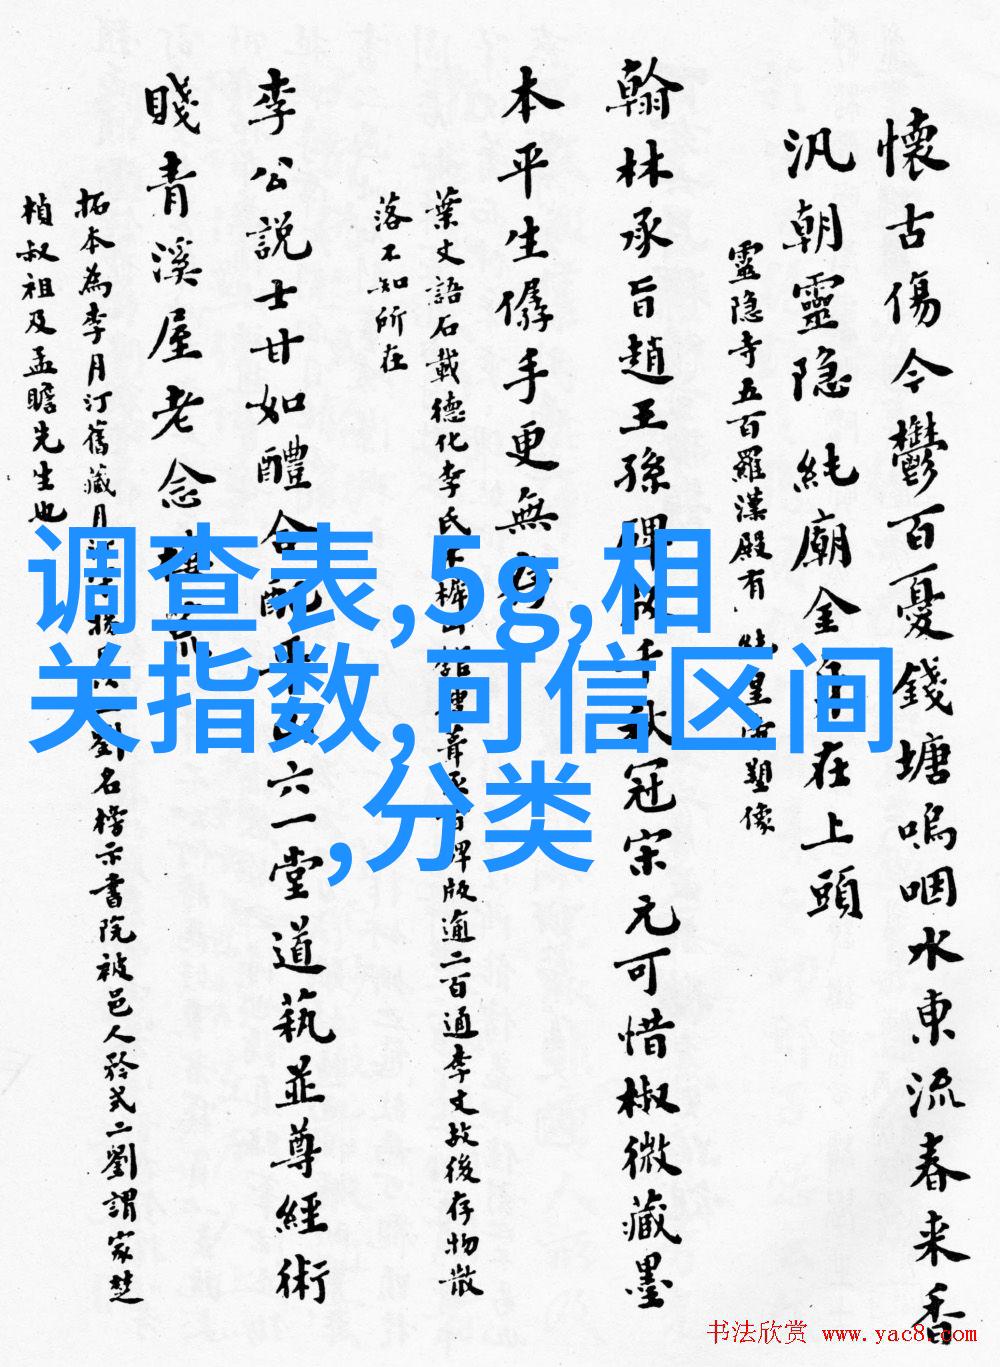 懷古傷今鬱百憂錢塘嗚咽水東流春来香
汎朝靈隐純廟金身在上頭
靈隐寺五百羅漢殿有純皇帝塑像
翰林承旨趙王孫碑版千秋冠宋元可惜椒微藏墨
本平生儔手更無
葉文語石載德化李氏木樨山館
碑版逾二百通李文故後存物散
落不知所在
李公說士甘如醴合配
六一堂道蓺並尊經術
賤青溪屋老念
拓本為李月汀舊藏月
劉名榜示書院被邑人矜式二劉謂家楚
楨叔祖及孟瞻先生也
调查表,5g,相
关指数,可信区间
,分类
书法欣赏 www.yac8.com